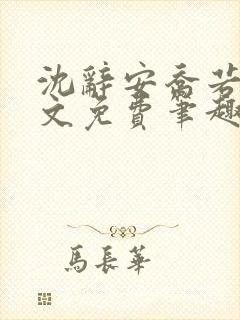 沈辭安喬若
文免費筆趣
馬長華